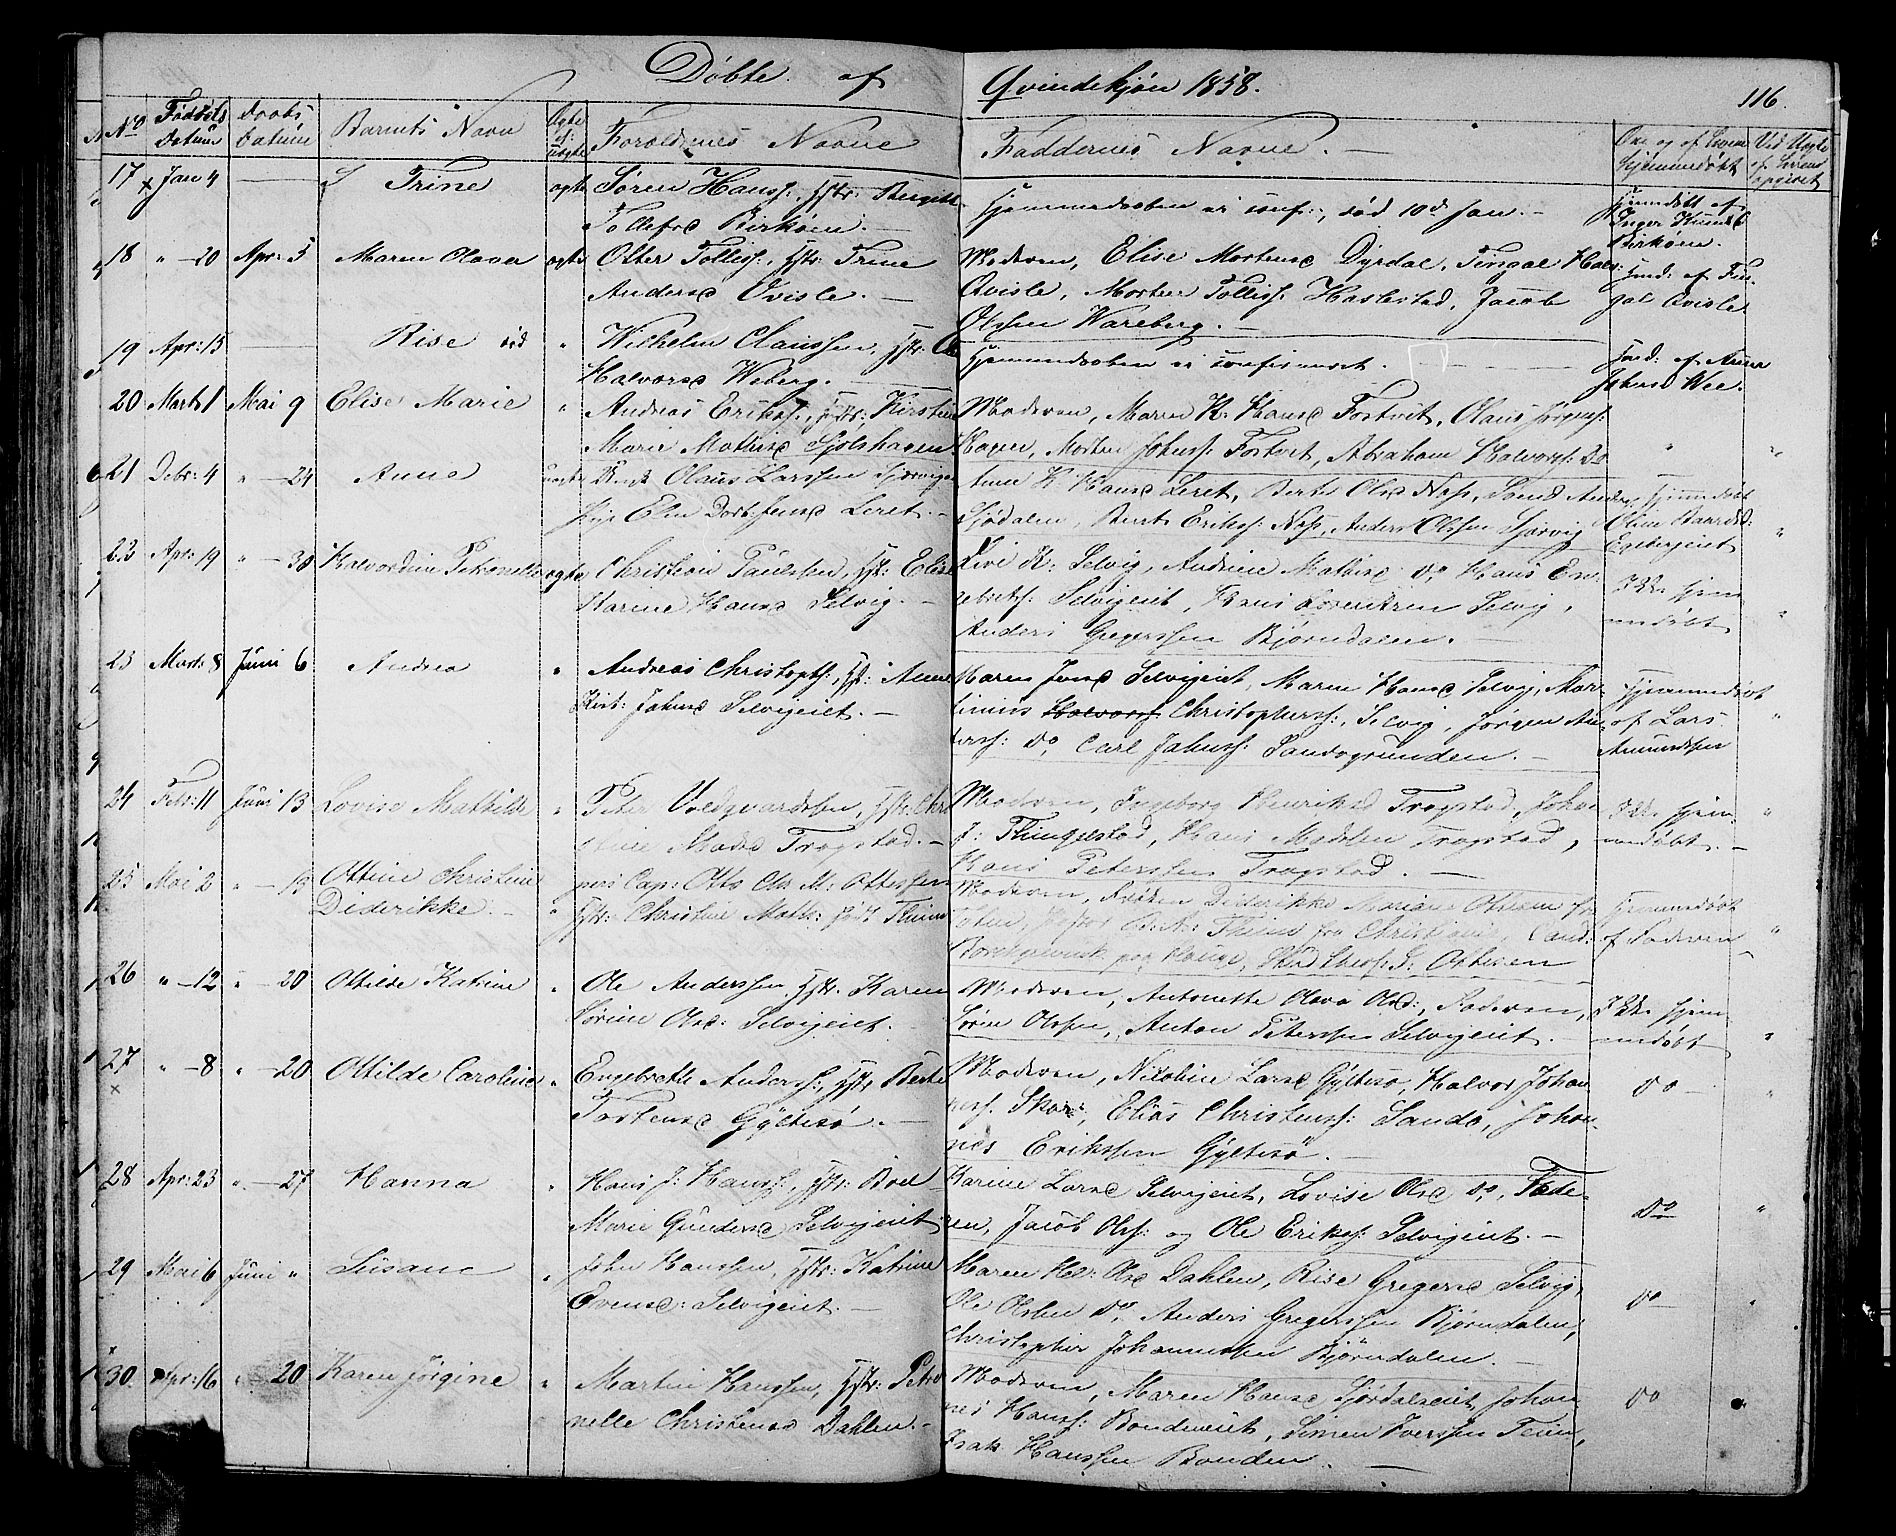 Döbte af Qvindekjön 1858.
116.
No Födsels Datum Daabs Datum Barnets Navn Ægte el: uægte Forældrenes Navne Faddernes Navne.
17 Jan 4 Trine ægte Sören Hanss:, Hstr: Bergitte
Tollefsd Birköen.
Hjemmedaaben ei conf:, död 10d Jan.
Inger Knudsd
Birköen.
18 " 20 Apr: 5 Maren Olava ægte Otter Tolliss:, Hstr: Trine
Andersd Qvisle.
Moderen, Elise Mortensd Dyrdal, Tingal Halv:
Qvisle, Morten Tolliss: Haslestad, Jacob
Olssen Wareberg.
Hmd: af Tin-
gal Qvisle
19 Apr: 15 Rise död " Wilhelm Claussen, Hstr:
Halvorsd Weberg.
Hjemmedaaben ei confirmeret.
Hmd: af Anne
Johnsd Wee.
20 Marts 1 Mai 9 Elise Marie " Andreas Erikss:, Hstr: Kirstine
Marie Mathisd Sjölshagen
Moderen, Maren H: Hansd Fortvit, Olaus Jörgenss:
Hagen, Morten Johnss: Fortvit, Abraham Halvorss: Do
21 Debr: 4 " 24 Anna uægte Olaus Larssen Sjörvigen
Pige Elen Dort: Jensd Leret.
Hansd Leret, Berte Olsd Næs,
Sjödalen, Bernt Erikss: Næs, Anders Olssen Sjörvig
Hjemmedöbt
Eline Baardsd:
Engbergeiet
22 Apr: 19 " 30 Halvordine Petronelle ægte Christian Paulssen, Hstr: Elise
Karine Hansd Selvig.
Live H: Selvig, Andrine Mathisd Do, Hans En-
gebretss: Selvigeiet, Hans Lorentzen Selvig,
Anders Gregerssen Björndalen.
Ikke hjem
medöbt
23 Mart: 8 Juni 6 Andrea " Andreas Christophs:, Hst: Anne
Kirst: Johnsd Selvigeiet.
Maren Jensd Selvigeiet, Maren Hansd Selvig, Mar-
tinius Halvorss Christopherss:, Selvig, Jörgen An-
derss: Do, Carl Johnss: Sandagrunden.
Hjemmedöbt
af Lars
Amundsen
24 Febr: 11 Juni 13 Lovise Mathilde " Peter Voldqvardssen, Hstr: Chri
stine Madsd Trogstad.
Moderen, Ingeborg Henriksd Trogstad, Joh
J: Flingestad, Hans Madssen Trogstad,
Hans Peterssen Trogstad.
Ikke hjem-
medöbt.
25 Mai 2 " 13 Ottine Christine
Diderikke.
pens Cap: Otto Chr M: Ottessen
Hstr: Christine Math: födt Thime
Moderen, Fröken Diderikke Mariane Ottesen fra
Thime fra Christiania, Cand:
Hjemmedöbt
af Faderen
26 " 12 " 20 Ottilde Katrine " Ole Anderssen, Hstr: Karen
Sörine Olsd: Selvigeiet.
Moderen, Antonette Olava Olsd:, Faderen,
Sören Olssen, Anton Peterssen Selvigeiet.
Ikke hjem
medöbt
27 " 8 " 20 Ottilde Caroline " Engebreth Anderss:, Hstr: Berte
Torstensd Gyltesö.
Moderen, Nicoline Larsd Gyltesö, Halvor Johan
ness: Skar:, Elias Christenss: Sanda, Johan-
nes Erikssen Gyltesö.
Do
28 Apr: 23 " 27 Hanna " Hans J: Hanss:, Hstr: Boel
Marie Gundersd Selvigeiet
Karine Larsd Selvigeiet, Lovise Olsd Do, Fade-
ren, Jacob Olss: og Ole Erikss: Selvigeiet.
Do
29 Mai 6 Juni " Susane " John Hanssen, Hstr: Katrine
Evensd: Selvigeiet.
Maren Hel: Olsd Dahlen, Rise Gregersd Selvig,
Ole Olssen Do, Anders Gregerssen Björndalen,
Christopher Johannessen Björndalen.
Do
30 Apr: 16 " 20 Karen Jörgine " Martin Hanssen, Hstr: Petro
nelle Christensd Dahlen.
Moderen, Maren Hansd Sjördalseiet, Johan
nes Hanss: Bondeneiet, Simen Iverssen Teien,
Isak Hanssen Bonden.
Do